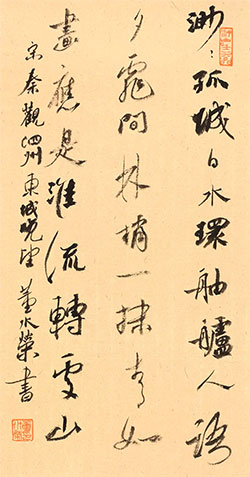 渺：孤城白水環舳艫人語
夕霏間林梢一抹青如
畫應是淮流轉雯山
宋秦觀泗州東城晚望 董水榮書